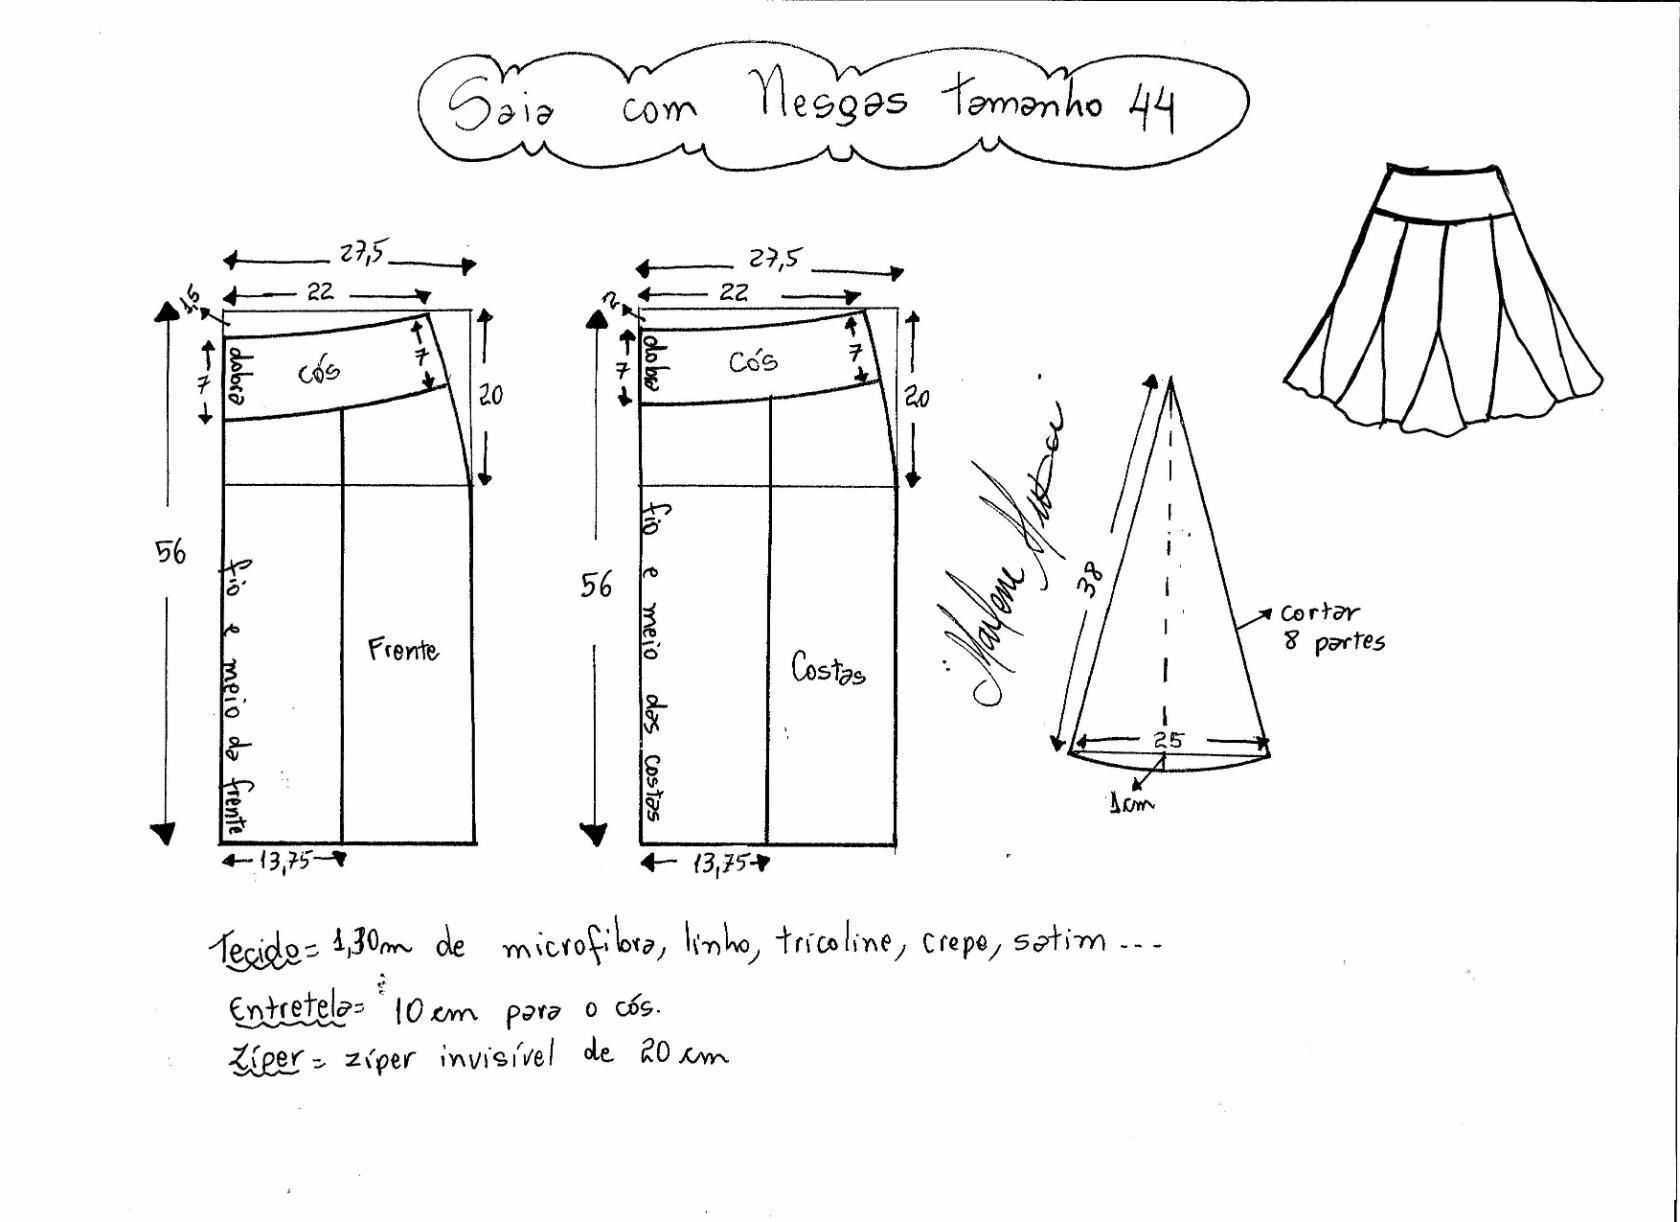 Saia com Nesgas tamanho 44
27,5
22
1,5
7
dobra
cós
7
20
56
fio e meio da frente
Frente
13,75
27,5
22
2
7
dobra
cós
7
20
56
fio e meio das costas
Costas
13,75
Marlene
38
25
1cm
cortar
8 partes
Tecido= 1,30m de microfibra, linho, tricoline, crepe, satim ---
Entretela= 10 cm para o cós.
Zíper = zíper invisível de 20 cm